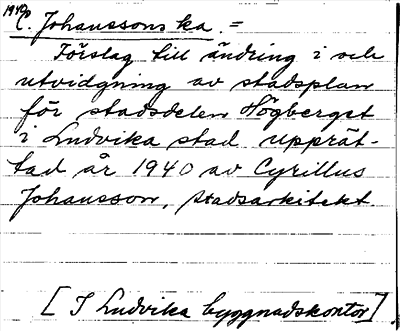 1940
C. Johanssons ka. =
Förslag till ändring i och
utvidgning av stadsplan
för stadsdelen Högberget
i Ludvika stad upprät-
tad år 1940 av Cyrillus
Johansson, stadsarkitekt.
[I Ludvika byggnadskontor]